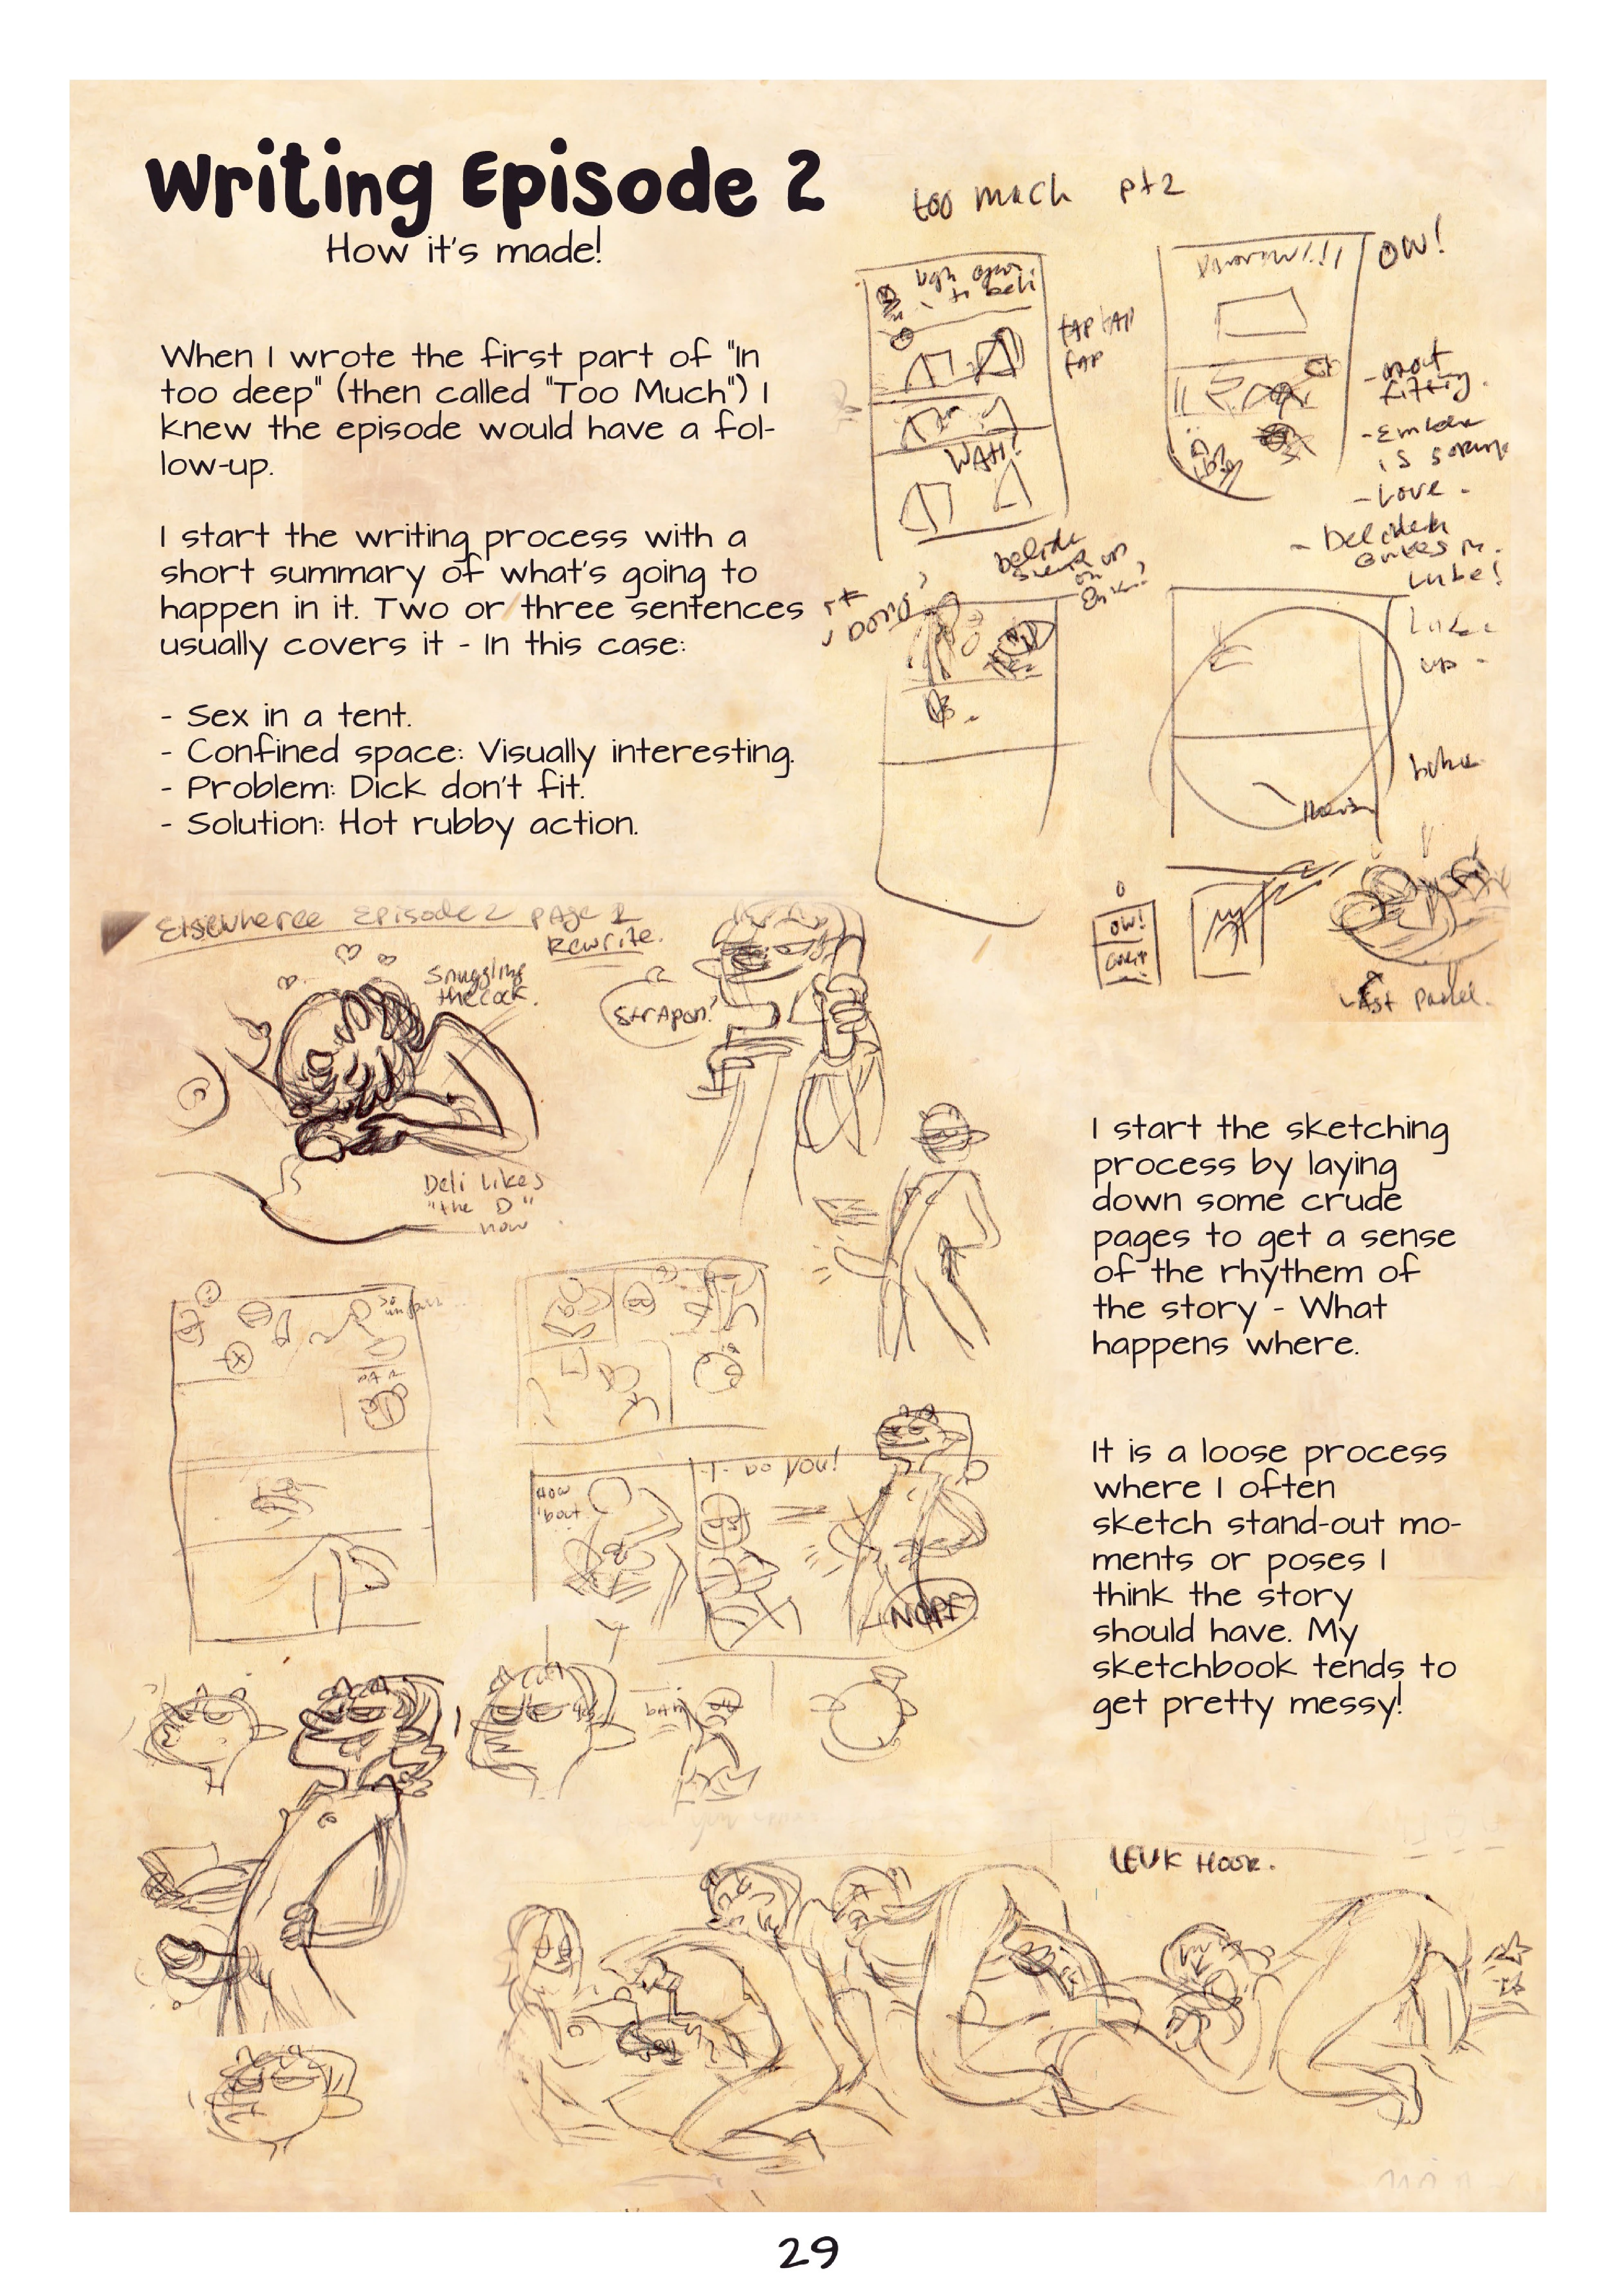 Writing Episode 2
How it's made!
When I wrote the first part of "In
too deep" (then called "Too Much") I
knew the episode would have a fol-
low-up.
I start the writing process with a
short summary of what's going to
happen in it. Two or three sentences
usually covers it - In this case:
- Sex in a tent.
- Confined space: Visually interesting.
- Problem: Dick don't fit.
- Solution: Hot rubby action.
too much pt2
OW!
FAP FAP
FAP
WAH!
- not
fitting.
is
- Love -
Lube!
OW!
Last panel.
Elsewheree Episode 2 page 1
Rewrite.
Snuggling
the cock.
Strapon?
Deli likes
"the D"
now
I start the sketching
process by laying
down some crude
pages to get a sense
of the rhythem of
the story - What
happens where.
HOW
'bout
you!
NOPE
It is a loose process
where I often
sketch stand-out mo-
ments or poses I
think the story
should have. My
sketchbook tends to
get pretty messy!
LEUK HOOR.
29